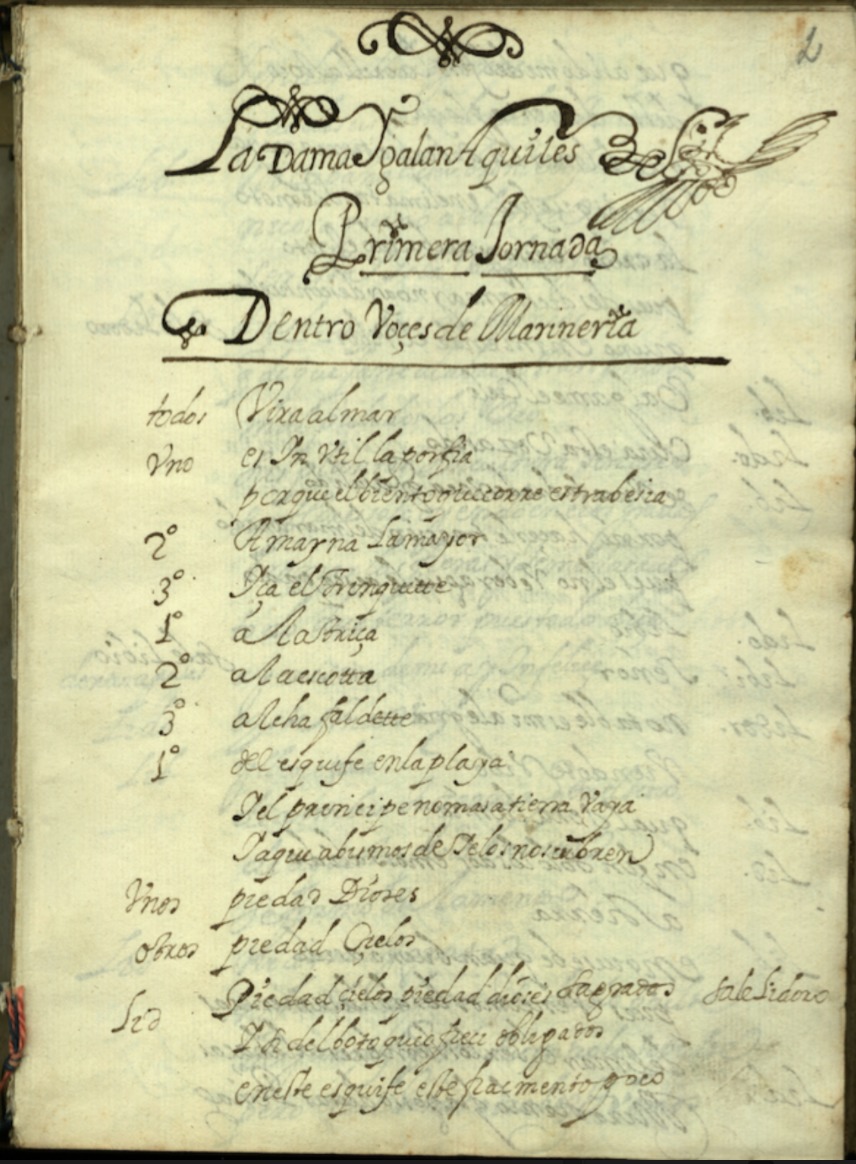 2
La Dama y galan Aquiles
Primera Jornada
Dentro Voçes de Marineria
todos Vira al mar
Vno es In Vtil la porfia
porque el biento que corre es trabesia
2º Amayna La mayor
3º Iça el Trinquette
1º a la triça
2º a la escotta
3º al chafaldette
1º del esquife en la playa
el principe no mas a tierra Vaya
ya que abismos de yelos nos cubren
Vnos piedad Dioses
otros piedad Çielos
Lid Piedad çielos piedad dioses Sagrados sale Lidoro
y si del boto que os hiçe obligados
en este esquife este fracmento poco